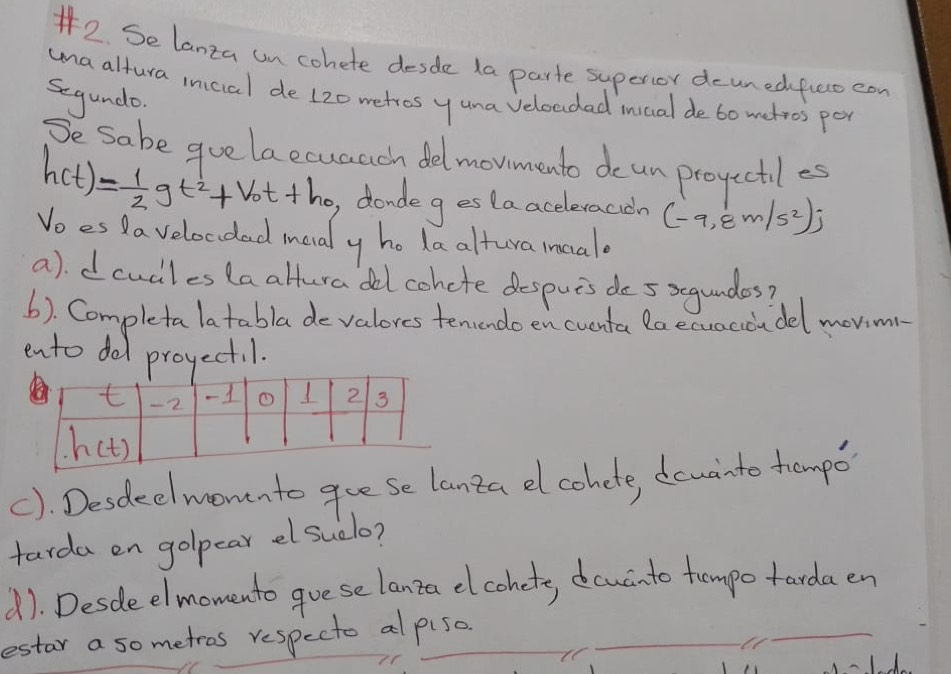 #2. Se lanza un cohete desde la parte superior de un edificio con
una altura inicial de 120 metros y una velocidad inicial de 60 metros por
segundo.
Se sabe que la ecuación del movimiento de un proyectil es
h(t)=1/2 gt²+V₀t+h₀, donde g es la aceleración (-9,8m/s²);
V₀ es la velocidad inicial y h₀ la altura inicial.
a). ¿cuál es la altura del cohete después de 5 segundos?
b). Completa la tabla de valores teniendo en cuenta la ecuación del movimi-
ento del proyectil.
t -2 -1 0 1 2 3
h(t)
c). Desde el momento que se lanza el cohete, ¿cuánto tiempo
tarda en golpear el suelo?
d). Desde el momento que se lanza el cohete, ¿cuánto tiempo tarda en
estar a 50 metros respecto al piso.